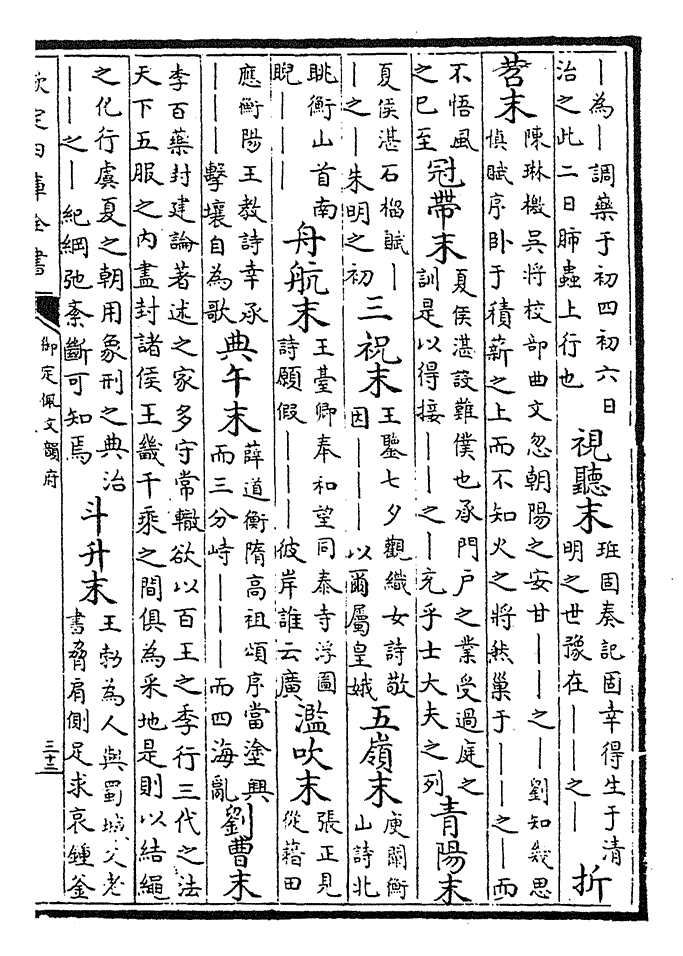 ｜為｜調藥于初四初六日治之此二日肺蟲上行也 視聽末 班固奏記固幸得生于清明之世豫在｜｜之｜ 折
苕末 陳琳檄吳將校部曲文忽朝陽之安甘｜｜之｜劉知幾思慎賦序卧于積薪之上而不知火之將然巢于｜｜之｜而
不悟風之已至 冠帶末 夏侯湛設難僕也承門戶之業受過庭之訓是以得接｜｜之｜充乎士大夫之列 青陽末
夏侯湛石榴賦｜｜之｜朱明之初 三祝末 王鑒七夕觀織女詩敬因｜｜｜以爾屬皇娥 五嶺末 庾闡衡山詩北
眺衡山首南睨｜｜｜ 舟航末 王臺卿奉和望同泰寺浮圖詩願假｜｜｜彼岸誰云廣 濫吹末 張正見從藉田
應衡陽王教詩幸承｜｜｜擊壤自為歌 典午末 薛道衡隋高祖頌序當塗興而三分峙｜｜｜而四海亂 劉曹末
李百藥封建論著述之家多守常轍欲以百王之季行三代之法天下五服之內盡封諸侯王畿千乘之間俱為采地是則以結繩
之化行虞夏之朝用象刑之典治｜｜之｜紀綱弛紊斷可知焉 斗升末 王勃為人與蜀城父老書脅肩側足求哀鍾釜
欽定四庫全書 御定佩文韻府 三十三